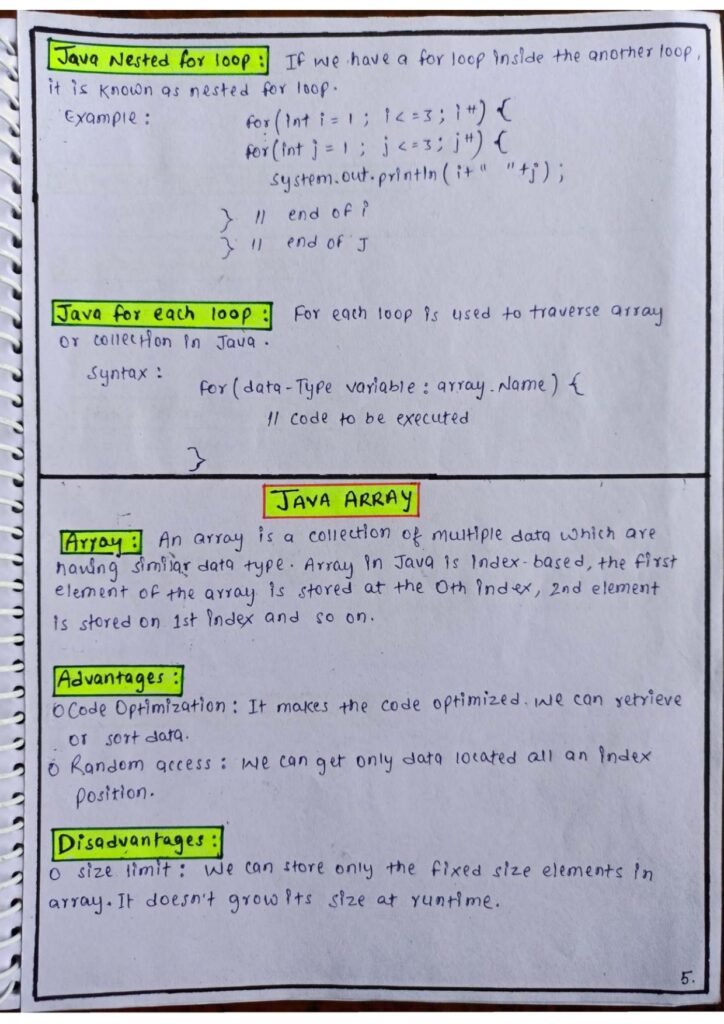 Java Nested for loop : If we have a for loop inside the another loop,
it is known as nested for loop.
Example : for (int i = 1 ; i <= 3 ; i++) {
for (int j = 1 ; j <= 3 ; j++) {
system.out.println ( i + " " + j ) ;
} // end of i
} // end of J
Java for each loop : For each loop is used to traverse array
or collection in Java .
Syntax :
for ( data-Type variable : array.Name ) {
// code to be executed
}
JAVA ARRAY
Array : An array is a collection of multiple data which are
having similar data type. Array in Java is index-based, the first
element of the array is stored at the 0th index, 2nd element
is stored on 1st index and so on.
Advantages :
o Code Optimization : It makes the code optimized. We can retrieve
or sort data.
o Random access : We can get only data located all an index
position.
Disadvantages :
o size limit : We can store only the fixed size elements in
array. It doesn't grow its size at runtime.
5.